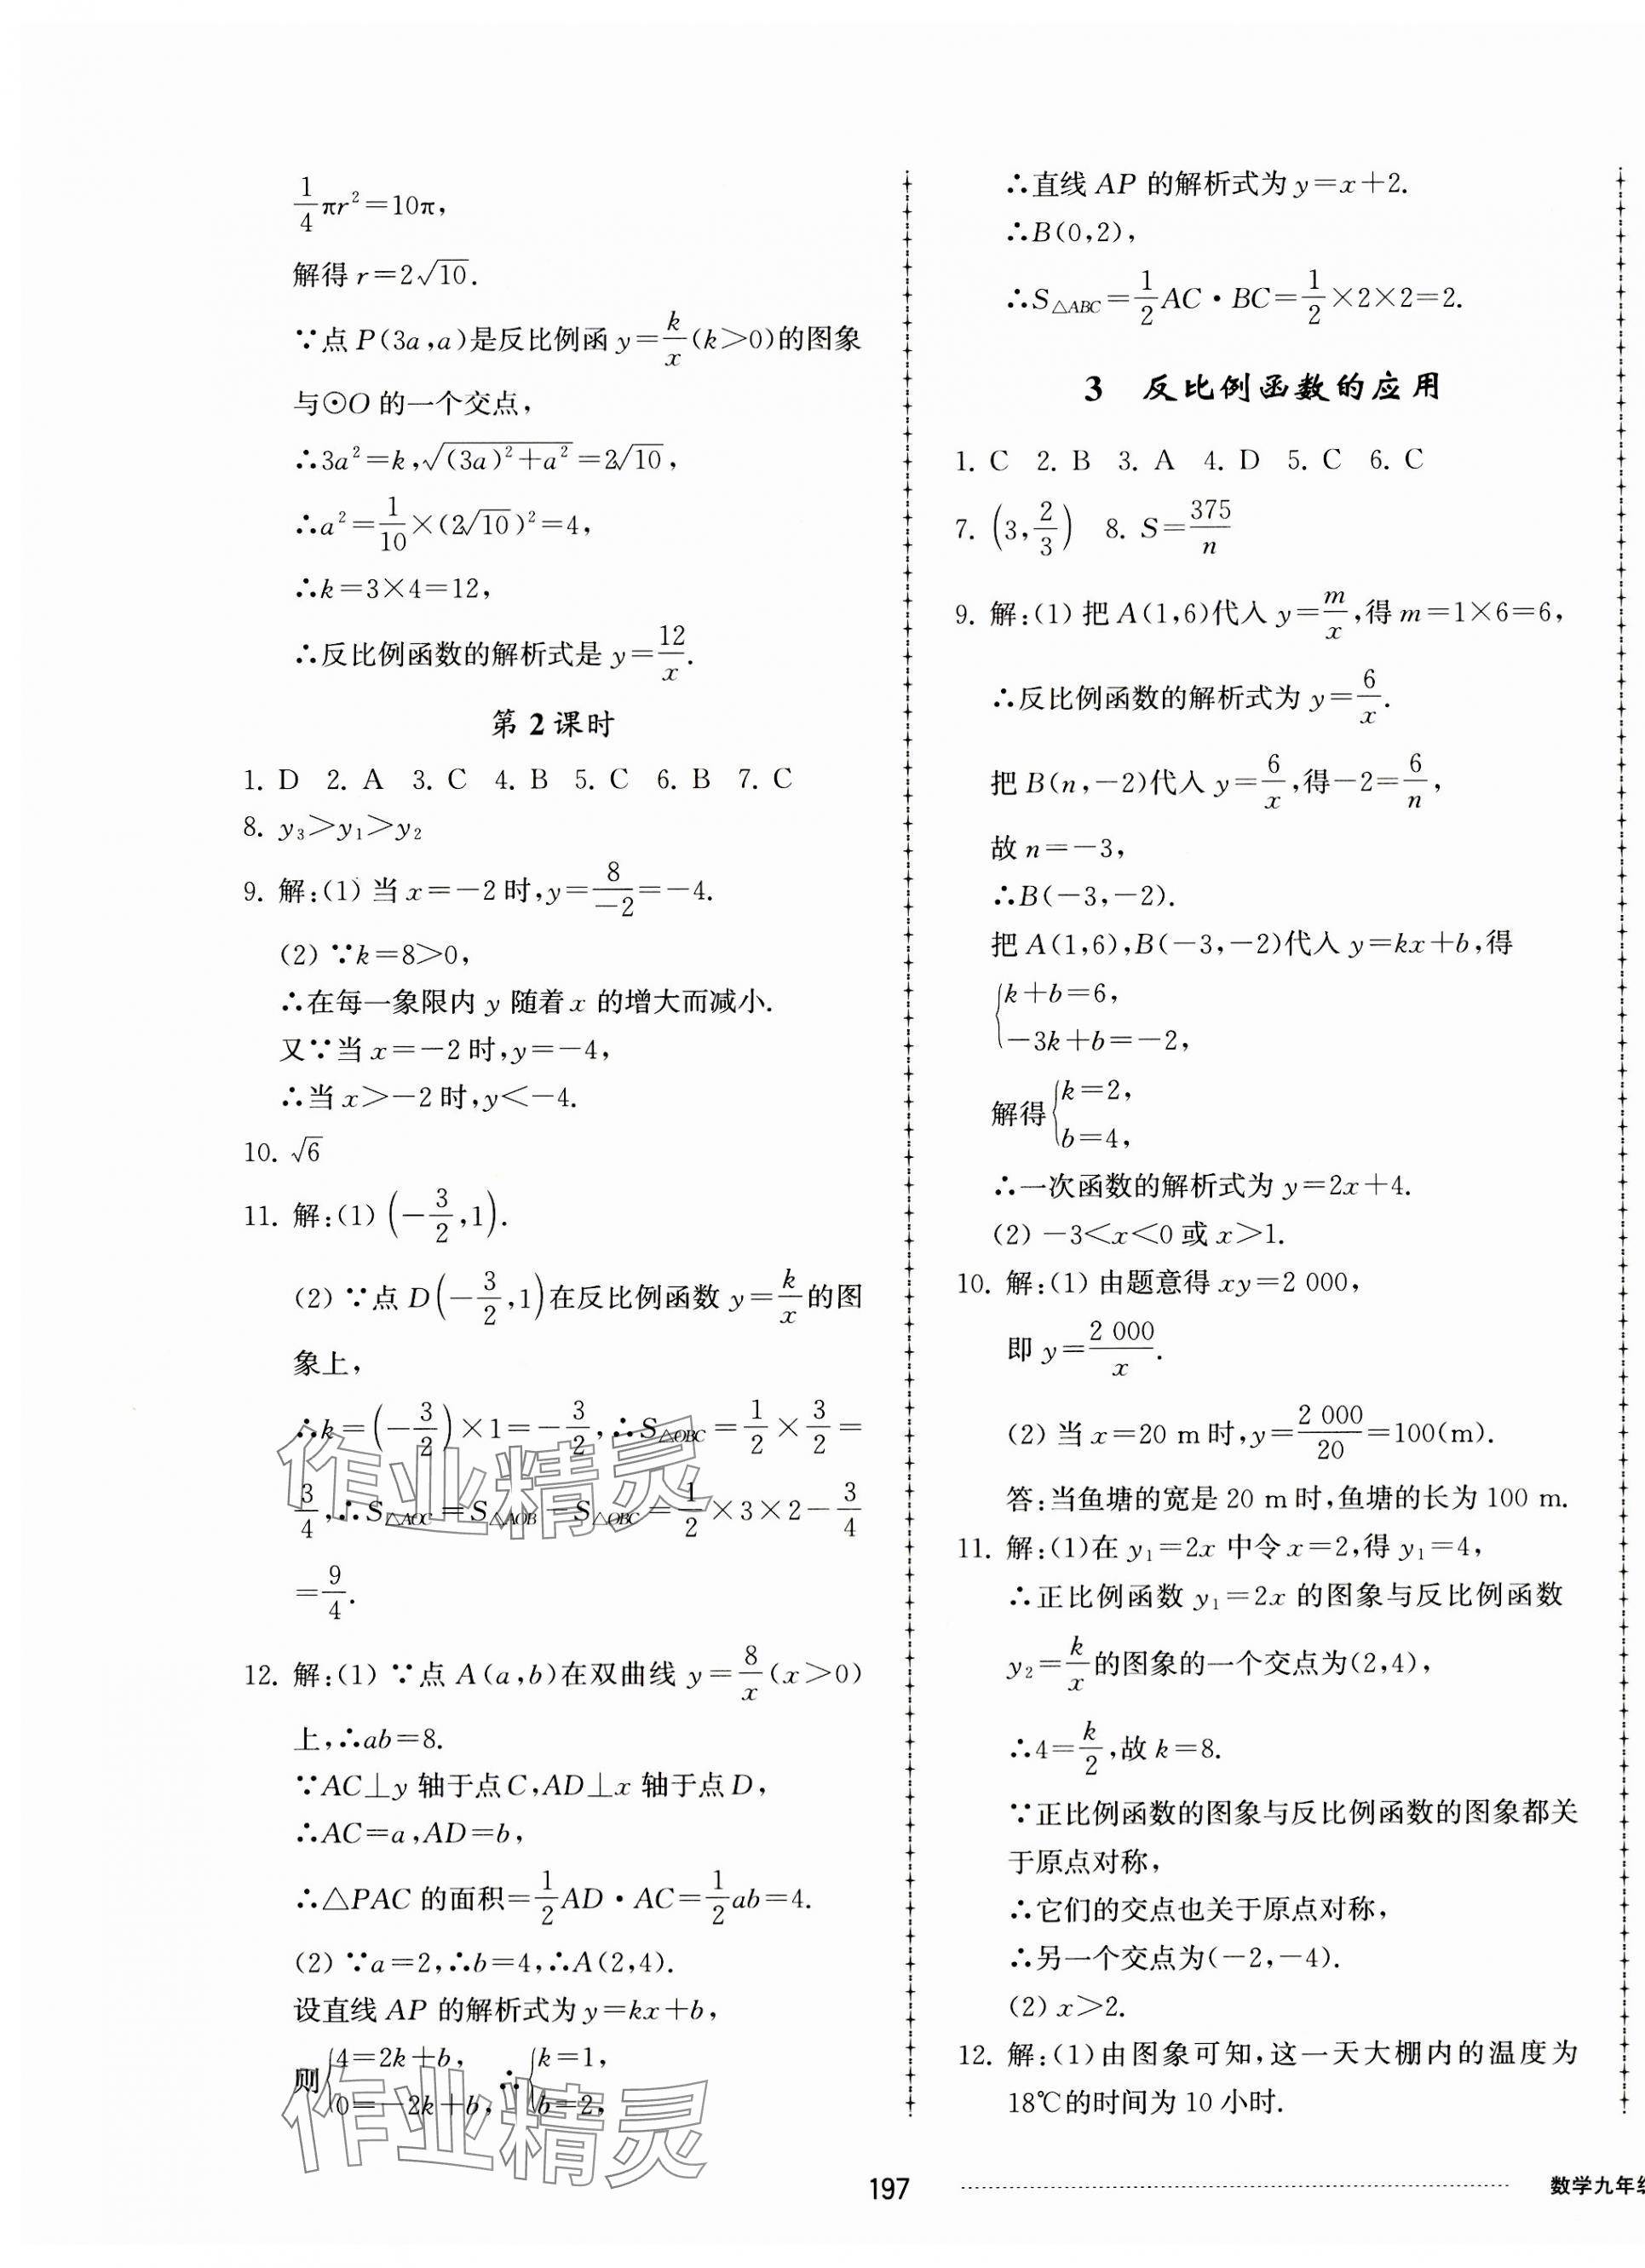 1/4 πr²=10π,
解得 r=2√10.
∵点 P(3a,a)是反比例函 y=k/x(k>0)的图象
与⊙O 的一个交点,
∴3a²=k,√((3a)²+a²)=2√10,
∴a²=1/10×(2√10)²=4,
∴k=3×4=12,
∴反比例函数的解析式是 y=12/x.
第 2 课时
1. D 2. A 3. C 4. B 5. C 6. B 7. C
8. y₃>y₁>y₂
9. 解:(1) 当 x=-2 时,y=8/-2=-4.
(2) ∵k=8>0,
∴在每一象限内 y 随着 x 的增大而减小.
又∵当 x=-2 时,y=-4,
∴当 x>-2 时,y<-4.
10. √6
11. 解:(1) (-3/2,1).
(2) ∵点 D(-3/2,1)在反比例函数 y=k/x的图
象上,
∴k=(-3/2)×1=-3/2,∴S△OBC=1/2×3/2=
3/4,∴S△AOC=S△AOB-S△OBC=1/2×3×2-3/4
=9/4.
12. 解:(1) ∵点 A(a,b)在双曲线 y=8/x(x>0)
上,∴ab=8.
∵AC⊥y 轴于点 C,AD⊥x 轴于点 D,
∴AC=a,AD=b,
∴△PAC 的面积=1/2 AD·AC=1/2 ab=4.
(2) ∵a=2,∴b=4,∴A(2,4).
设直线 AP 的解析式为 y=kx+b,
则{4=2k+b, 0=-2k+b, ∴{k=1, b=2,
∴直线 AP 的解析式为 y=x+2.
∴B(0,2),
∴S△ABC=1/2 AC·BC=1/2×2×2=2.
3 反比例函数的应用
1. C 2. B 3. A 4. D 5. C 6. C
7. (3,2/3) 8. S=375/n
9. 解:(1) 把 A(1,6)代入 y=m/x,得 m=1×6=6,
∴反比例函数的解析式为 y=6/x.
把 B(n,-2)代入 y=6/x,得-2=6/n,
故 n=-3,
∴B(-3,-2).
把 A(1,6),B(-3,-2)代入 y=kx+b,得
{k+b=6,
-3k+b=-2,
解得{k=2, b=4,
∴一次函数的解析式为 y=2x+4.
(2) -3<x<0 或 x>1.
10. 解:(1) 由题意得 xy=2 000,
即 y=2 000/x.
(2) 当 x=20 m 时,y=2 000/20=100(m).
答:当鱼塘的宽是 20 m 时,鱼塘的长为 100 m.
11. 解:(1)在 y₁=2x 中令 x=2,得 y₁=4,
∴正比例函数 y₁=2x 的图象与反比例函数
y₂=k/x的图象的一个交点为(2,4),
∴4=k/2,故 k=8.
∵正比例函数的图象与反比例函数的图象都关
于原点对称,
∴它们的交点也关于原点对称,
∴另一个交点为(-2,-4).
(2) x>2.
12. 解:(1)由图象可知,这一天大棚内的温度为
18℃的时间为 10 小时.
作业精灵
作业精灵
197
数学九年